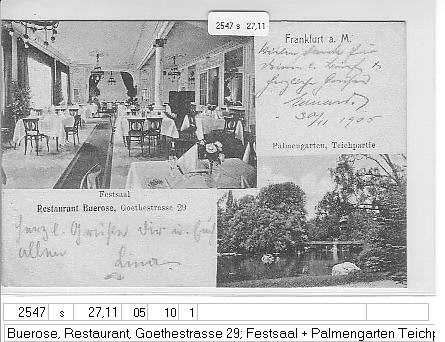 2547 s 27,11
Frankfurt a. M.
30/11 1905
Palmengarten, Teichpartie
Festsaal
Restaurant Buerose, Goethestrasse 29
herzl. Grüße dir u. Euch
allen
Lina
2547 s 27,11 05 10 1
Buerose, Restaurant, Goethestrasse 29; Festsaal + Palmengarten Teichp